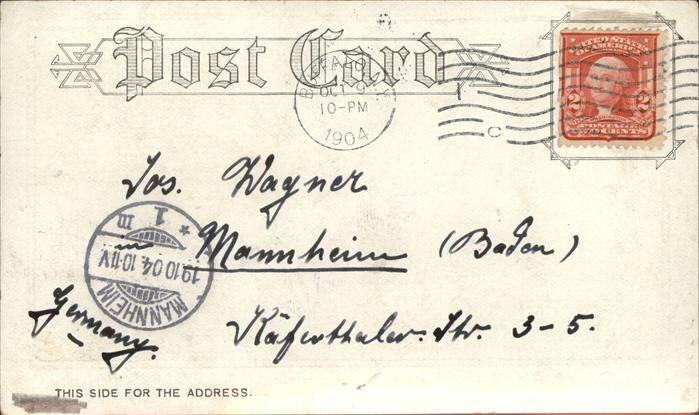 Post Card
BUFFALO
OCT 9
10-PM
1904
C
UNITED STATES
OF AMERICA
2 2
POSTAGE
TWO CENTS
Jos. Wagner
in Mannheim (Baden)
Käferthaler Str. 3-5.
Germany.
MANNHEIM
19.10.04.10-11V
* 1 m
THIS SIDE FOR THE ADDRESS.